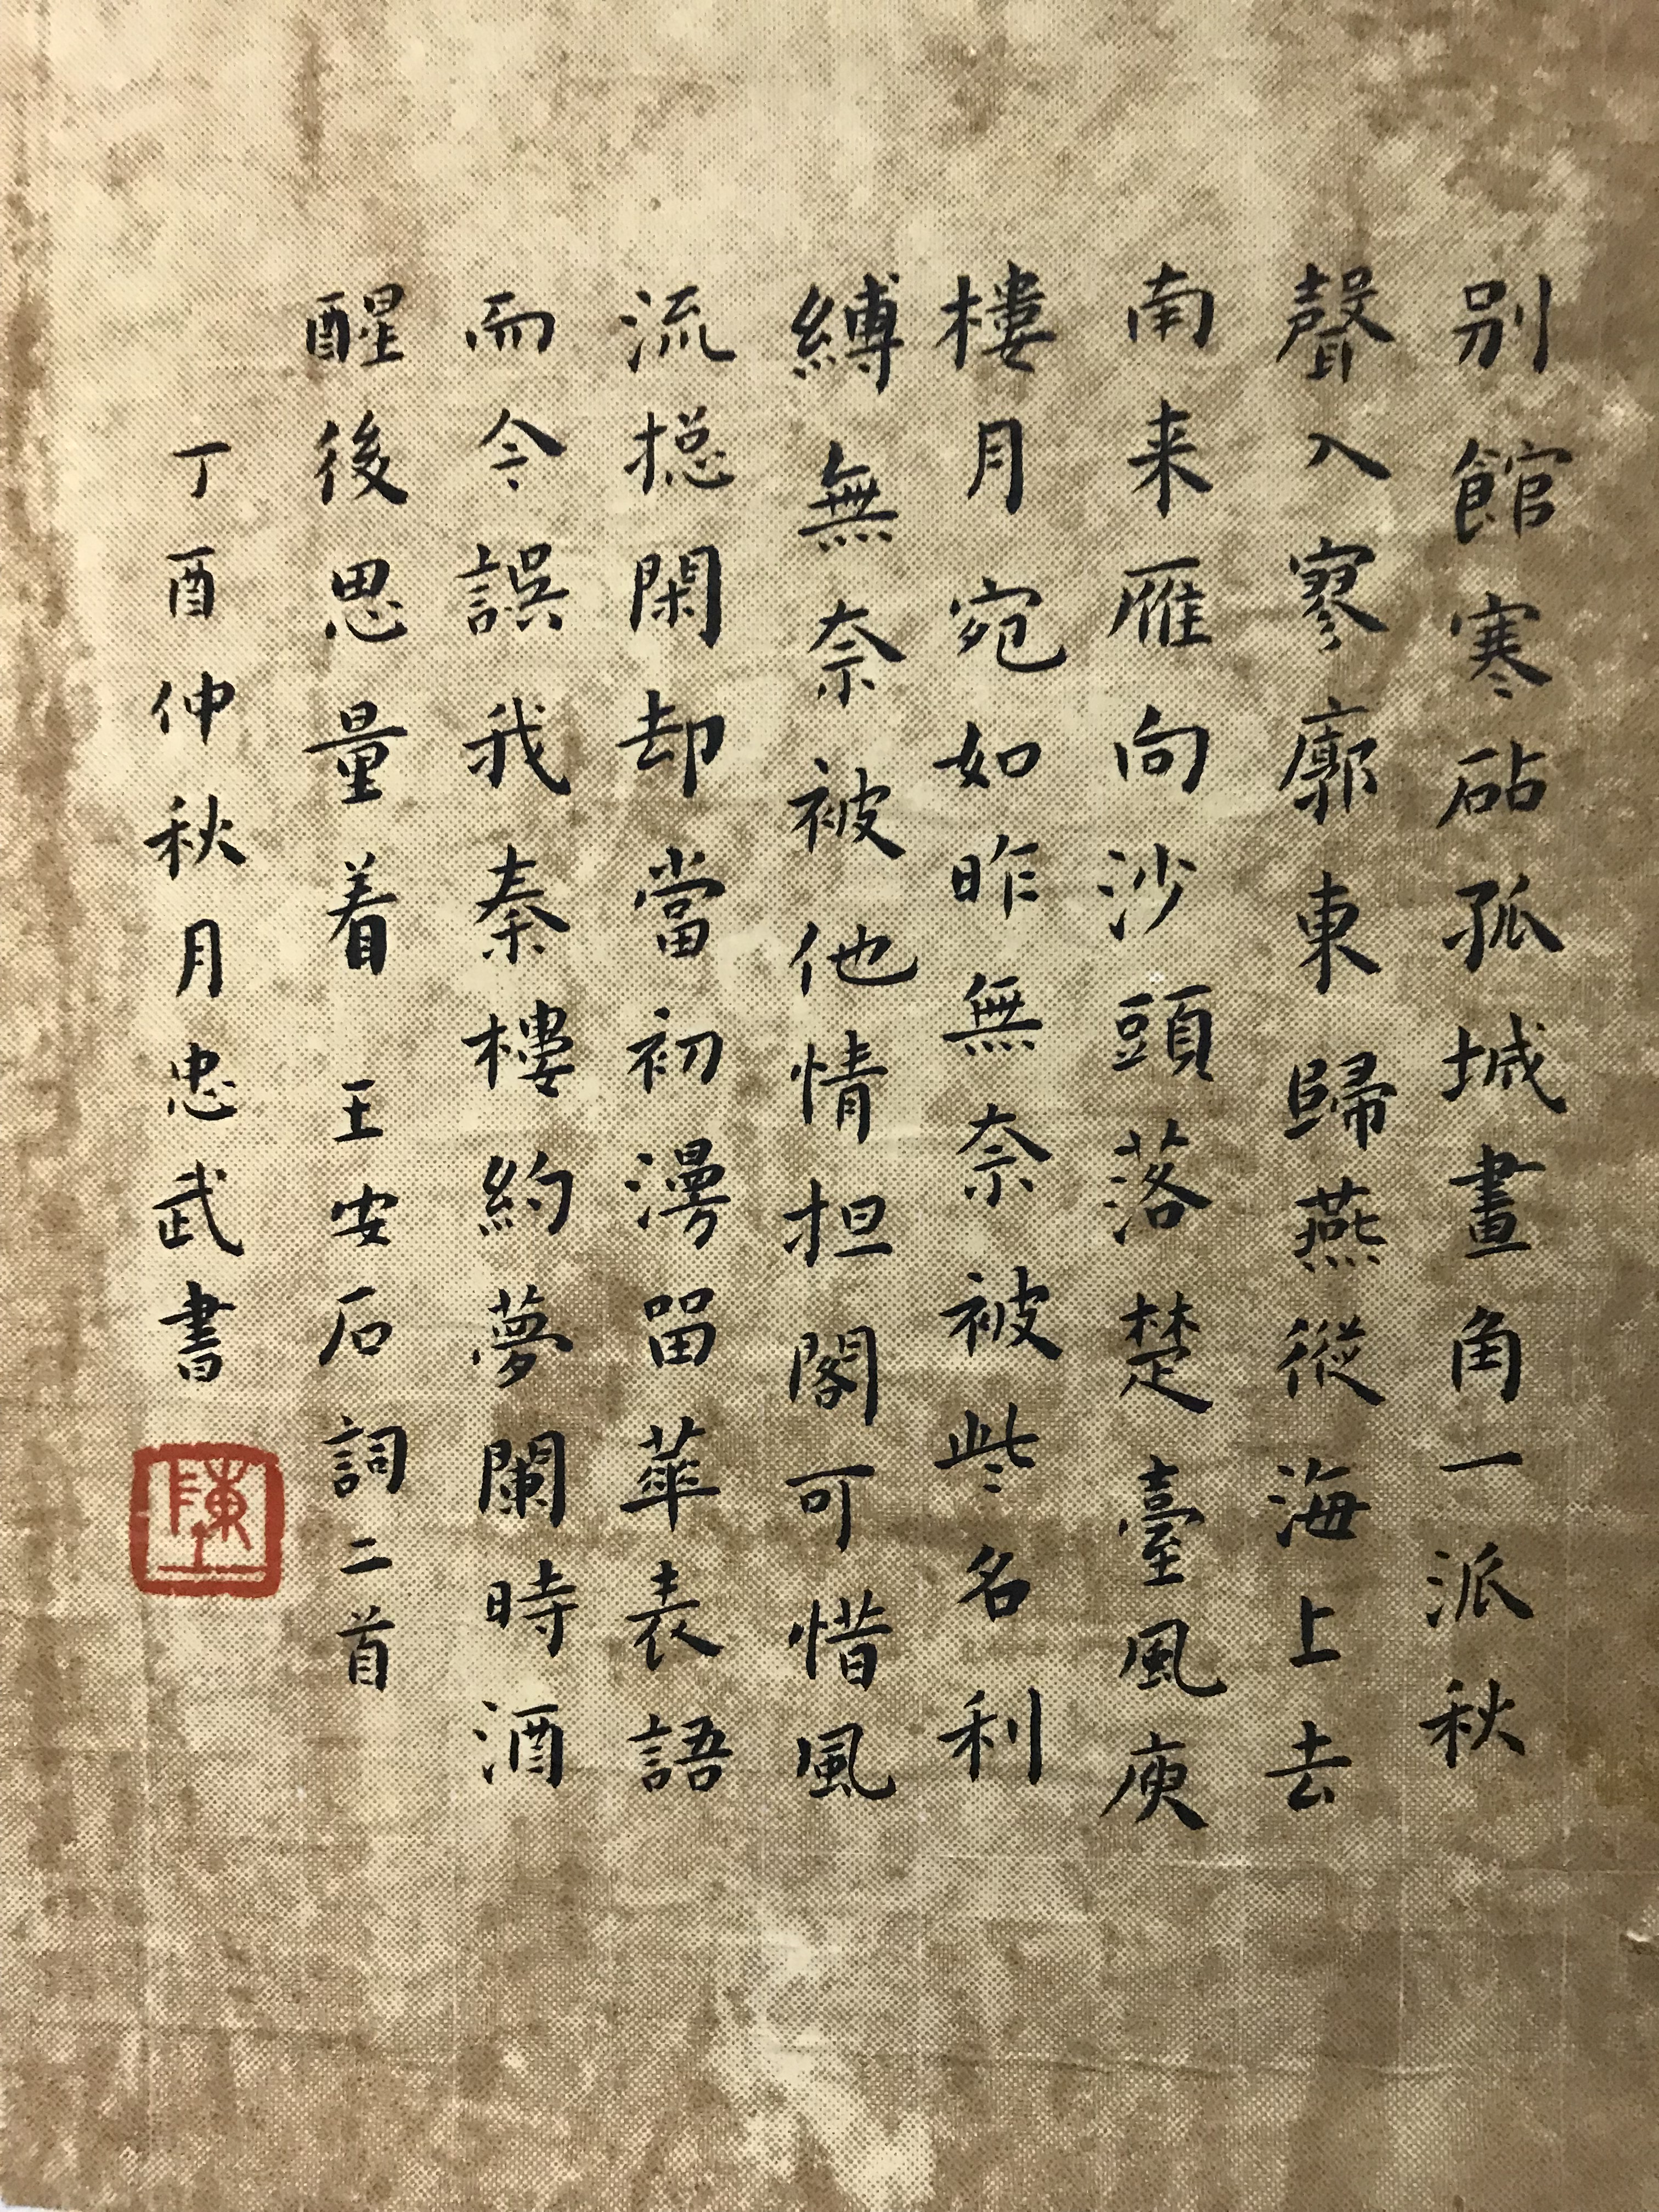 别館寒砧孤城畫角一派秋
聲入寥廓東歸燕從海上去
南来雁向沙頭落楚臺風庾
樓月宛如昨無奈被些名利
縛無奈被他情担閣可惜風
流揔閑却當初漫留華表語
而今誤我秦樓約夢闌時酒
醒後思量着 王安石詞二首
丁酉仲秋月忠武書
陳